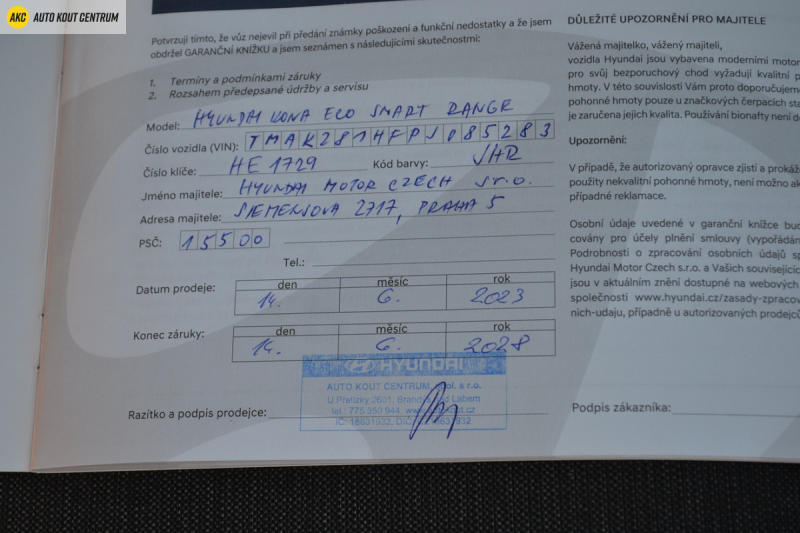 AKC AUTO KOUT CENTRUM
Potvrzuji tímto, že vůz nejevil při předání známky poškození a funkční nedostatky a že jsem
obdržel GARANČNÍ KNÍŽKU a jsem seznámen s následujícími skutečnostmi:
1. Termíny a podmínkami záruky
2. Rozsahem předepsané údržby a servisu
Model: HYUNDAI KONA ECO SMART RANGE
Číslo vozidla (VIN): TMAK281HFPJ085283
Číslo klíče: HE 1729 Kód barvy: JHR
Jméno majitele: HYUNDAI MOTOR CZECH s.r.o.
Adresa majitele: SIEMENSOVA 2717, PRAHA 5
PSČ: 15500
Tel.:
Datum prodeje: den měsíc rok
14. 6. 2023
Konec záruky: den měsíc rok
14. 6. 2028
HYUNDAI
AUTO KOUT CENTRUM, spol. s r.o.
U Přelízky 2601, Brandýs nad Labem
tel.: 775 350 944,
IČ: 18631932, DIČ:
Razítko a podpis prodejce:
DŮLEŽITÉ UPOZORNĚNÍ PRO MAJITELE
Vážená majitelko, vážený majiteli,
vozidla Hyundai jsou vybavena moderními motor
pro svůj bezporuchový chod vyžadují kvalitní p
hmoty. V této souvislosti Vám proto doporučujem
pohonné hmoty pouze u značkových čerpacích sta
je zaručena jejich kvalita. Používání bionafty není d
Upozornění:
V případě, že autorizovaný opravce zjistí a prokáž
použity nekvalitní pohonné hmoty, není možno ak
případné reklamace.
Osobní údaje uvedené v garanční knížce bud
covány pro účely plnění smlouvy (vypořádán
Podrobnosti o zpracování osobních údajů sp
Hyundai Motor Czech s.r.o. a Vašich souvisejícíc
jsou v aktuálním znění dostupné na webových
společnosti www.hyundai.cz/zasady-zpracov
nich-udaju, případně u autorizovaných prodejců
Podpis zákazníka: